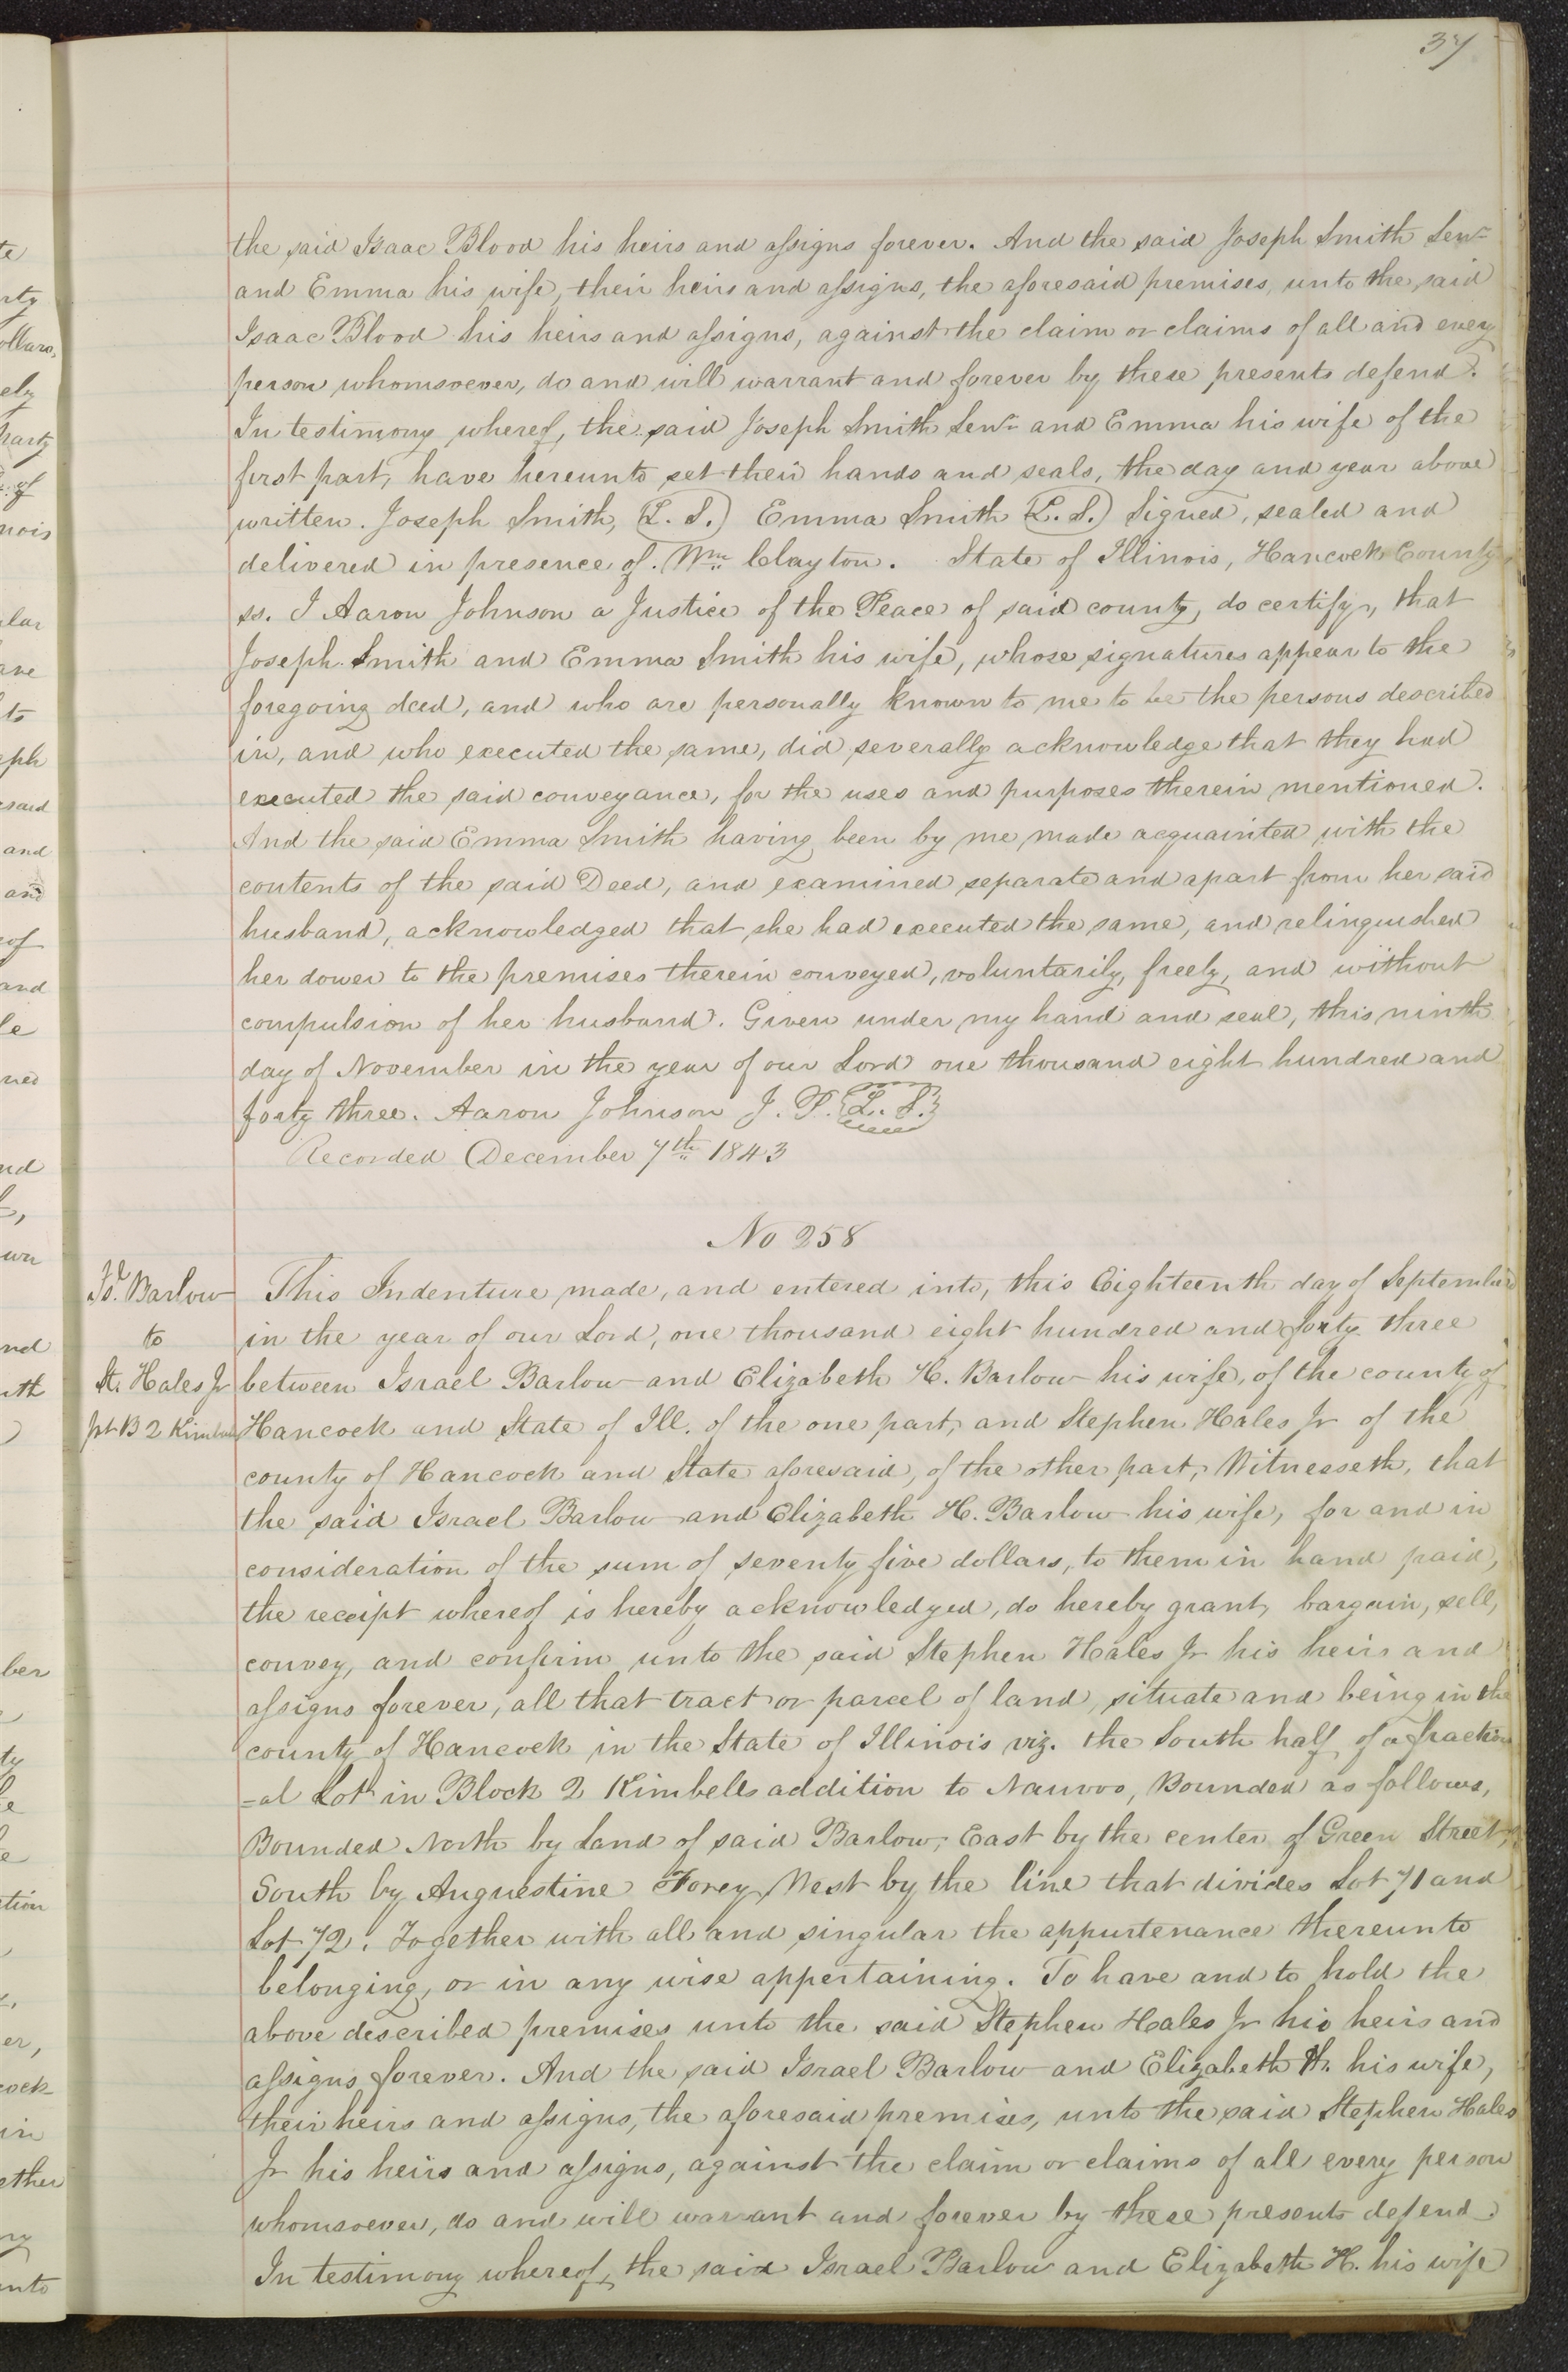 37
the said Isaac Blood his heirs and assigns forever. And the said Joseph Smith Senr
and Emma his wife, their heirs and assigns, the aforesaid premises, unto the said
Isaac Blood his heirs and assigns, against the claim or claims of all and every
person whomsoever, do and will warrant and forever by these presents defend.
In testimony whereof, the said Joseph Smith Senr and Emma his wife of the
first part, have hereunto set their hands and seals, the day and year above
written. Joseph Smith, (L. S.) Emma Smith (L. S.) Signed, sealed and
delivered in presence of. Wm Clayton. State of Illinois, Hancock County
ss. I Aaron Johnson a Justice of the Peace of said county, do certify, that
Joseph Smith and Emma Smith his wife, whose signatures appear to the
foregoing deed, and who are personally known to me to be the persons described
in, and who executed the same, did severally acknowledge that they had
executed the said conveyance, for the uses and purposes therein mentioned.
And the said Emma Smith having been by me made acquainted with the
contents of the said Deed, and examined separate and apart from her said
husband, acknowledged that she had executed the same, and relinquished
her dower to the premises therein conveyed, voluntarily, freely, and without
compulsion of her husband. Given under my hand and seal, this ninth
day of November in the year of our Lord one thousand eight hundred and
forty three. Aaron Johnson J. P. {L. S.}
Recorded December 7th 1843
No 258
Isl. Barlow
to
St. Hales Jr
pt B 2 Kimbell
This Indenture made, and entered into, this Eighteenth day of September
in the year of our Lord, one thousand eight hundred and forty three
between Israel Barlow and Elizabeth H. Barlow his wife, of the county of
Hancock and State of Ill. of the one part, and Stephen Hales Jr of the
county of Hancock and State aforesaid, of the other part, Witnesseth, that
the said Israel Barlow and Elizabeth H. Barlow his wife, for and in
consideration of the sum of seventy five dollars, to them in hand paid,
the receipt whereof is hereby acknowledged, do hereby grant, bargain, sell,
convey, and confirm unto the said Stephen Hales Jr his heirs and
assigns forever, all that tract or parcel of land, situate and being in the
county of Hancock in the State of Illinois viz. the South half of a fraction
=al Lot in Block 2 Kimbells addition to Nauvoo, Bounded as follows,
Bounded North by Land of said Barlow, East by the center of Green Street,
South by Anguestine Forey West by the line that divides Lot 71 and
Lot 72. Together with all and singular the appurtenance thereunto
belonging, or in any wise appertaining. To have and to hold the
above described premises unto the said Stephen Hales Jr his heirs and
assigns forever. And the said Israel Barlow and Elizabeth H. his wife,
their heirs and assigns, the aforesaid premises, unto the said Stephen Hales
Jr his heirs and assigns, against the claim or claims of all every person
whomsoever, do and will warrant and forever by these presents defend
In testimony whereof, the said Israel Barlow and Elizabeth H. his wife